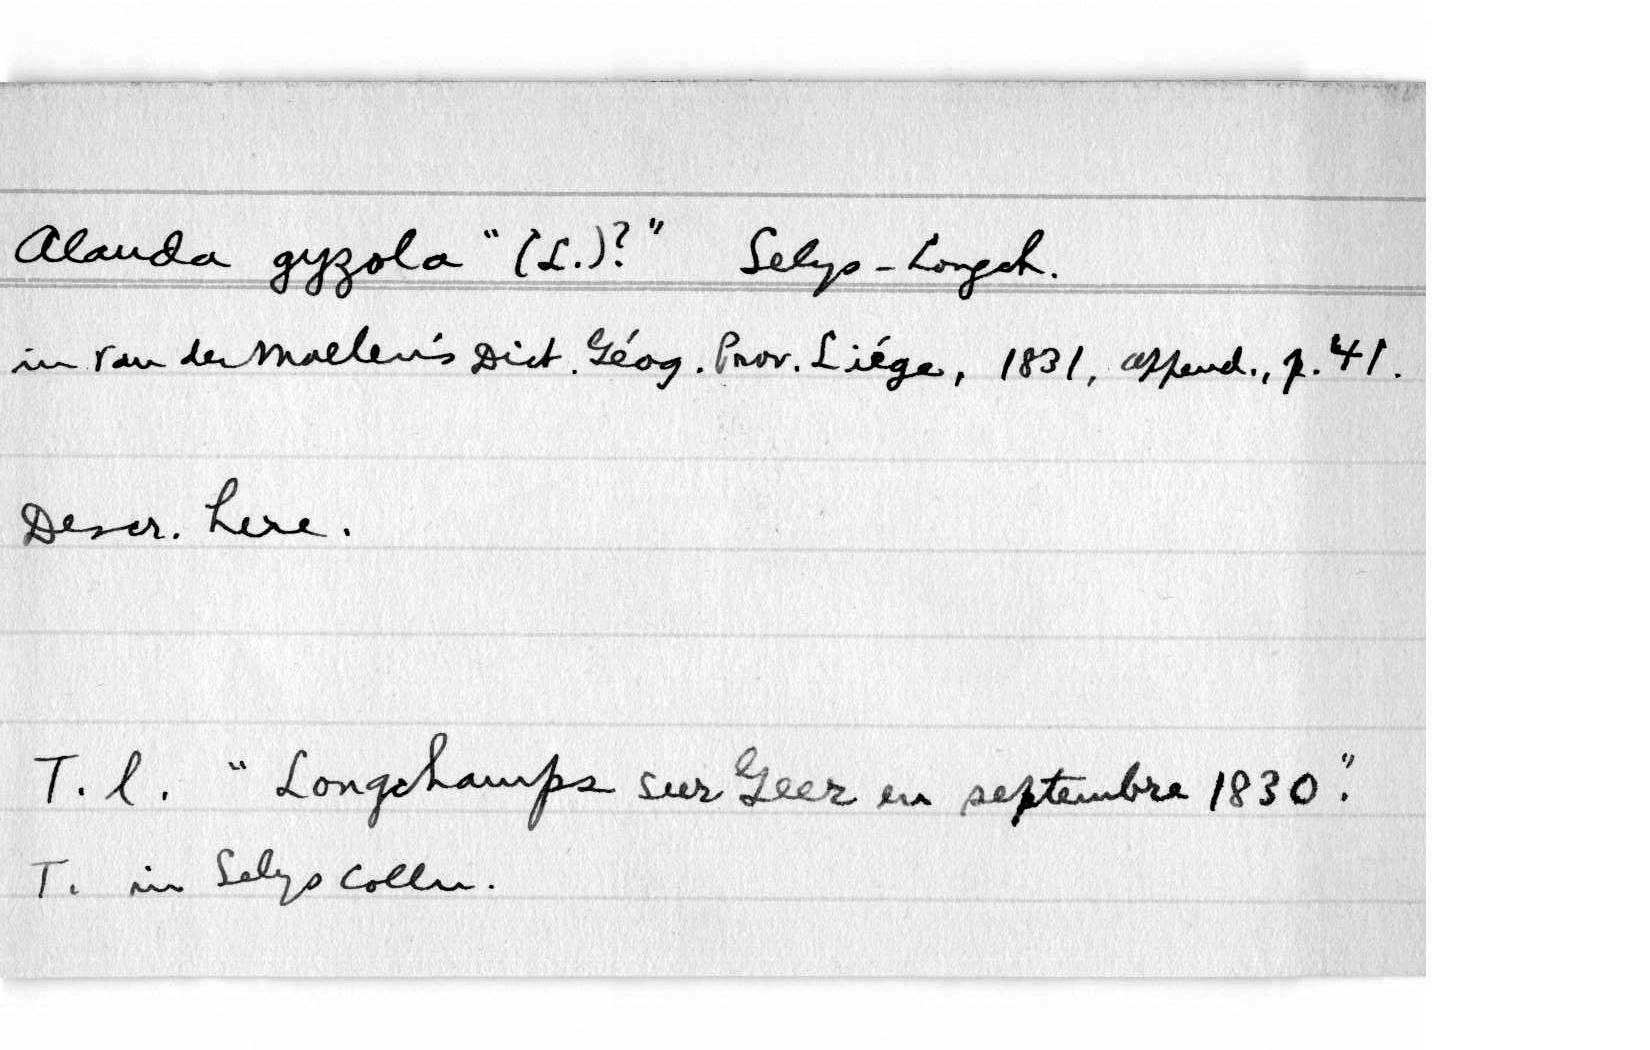 Alauda gyzola "(L.)?" Selys-Longch.
in Van der Maelen's Dict. Géog. Prov. Liége, 1831, append., p. 41.
Descr. here.
T. l. "Longchamps sur Geer en septembre 1830".
T. in Selys Colln.